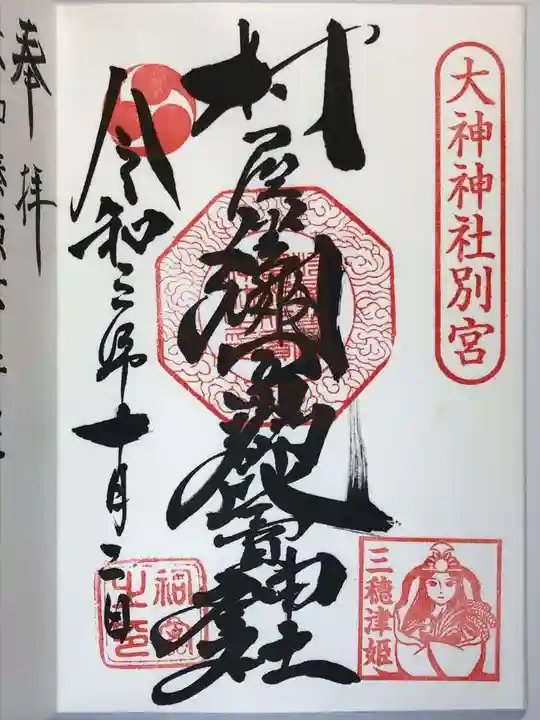 大神神社別宮
三穂津姫
村屋坐彌冨都比賣神社
令和三年十月二日
奉拝